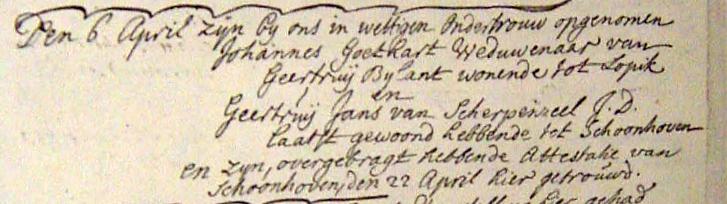 Den 6 April zijn by ons in wettigen Ondertrouw opgenomen
Johannes Goethart Weduwenaar van
Geertruij Bylant wonende tot Lopik
en
Geertruij Jans van Scherpenzeel J.D.
laatst gewoond hebbende tot Schoonhoven
en zyn, overgebragt hebbende Attestatie van
Schoonhoven, den 22 April hier getrouwd.
hier gehad